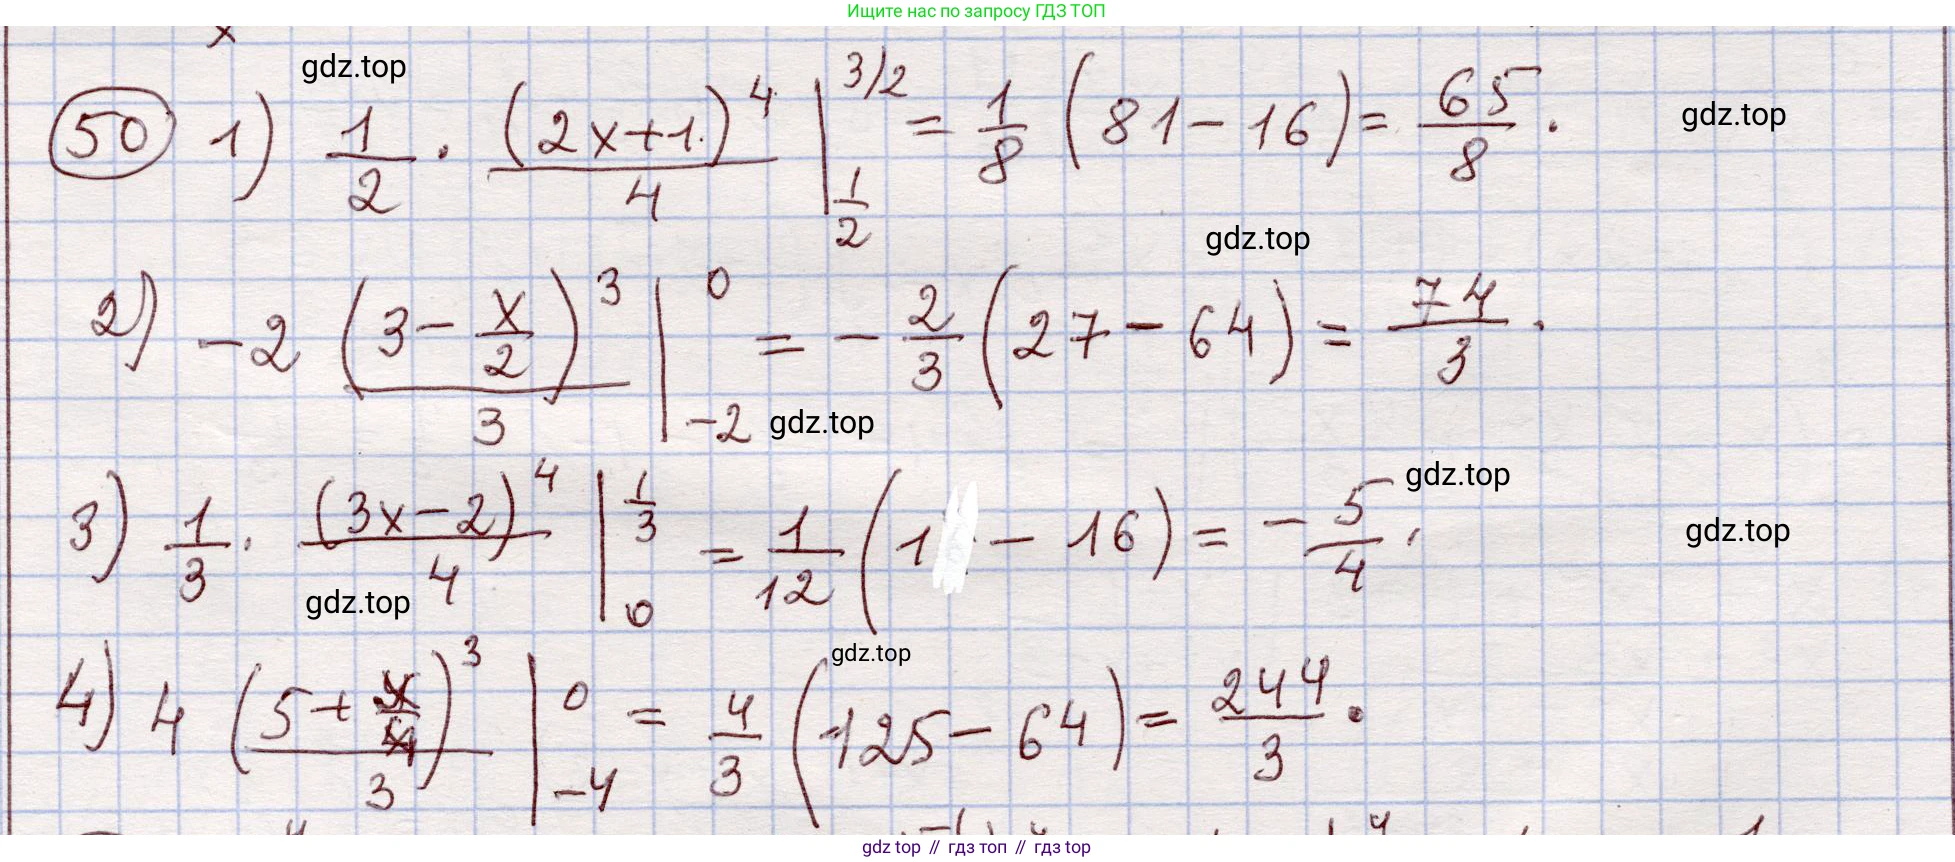 Ищите нас по запросу ГДЗ ТОП
gdz.top
50 1) 1/2 · (2x+1)^4/4 |_{1/2}^{3/2} = 1/8 (81 - 16) = 65/8 .
gdz.top
gdz.top
2) -2 (3 - x/2)^3/3 |_{-2}^{0} = - 2/3 (27 - 64) = 74/3 .
gdz.top
gdz.top
3) 1/3 · (3x-2)^4/4 |_{0}^{1/3} = 1/12 (1 - 16) = - 5/4 .
gdz.top
gdz.top
gdz.top
4) 4 (5 + x/4)^3/3 |_{-4}^{0} = 4/3 (125 - 64) = 244/3 .
gdz top // гдз топ // гдз top